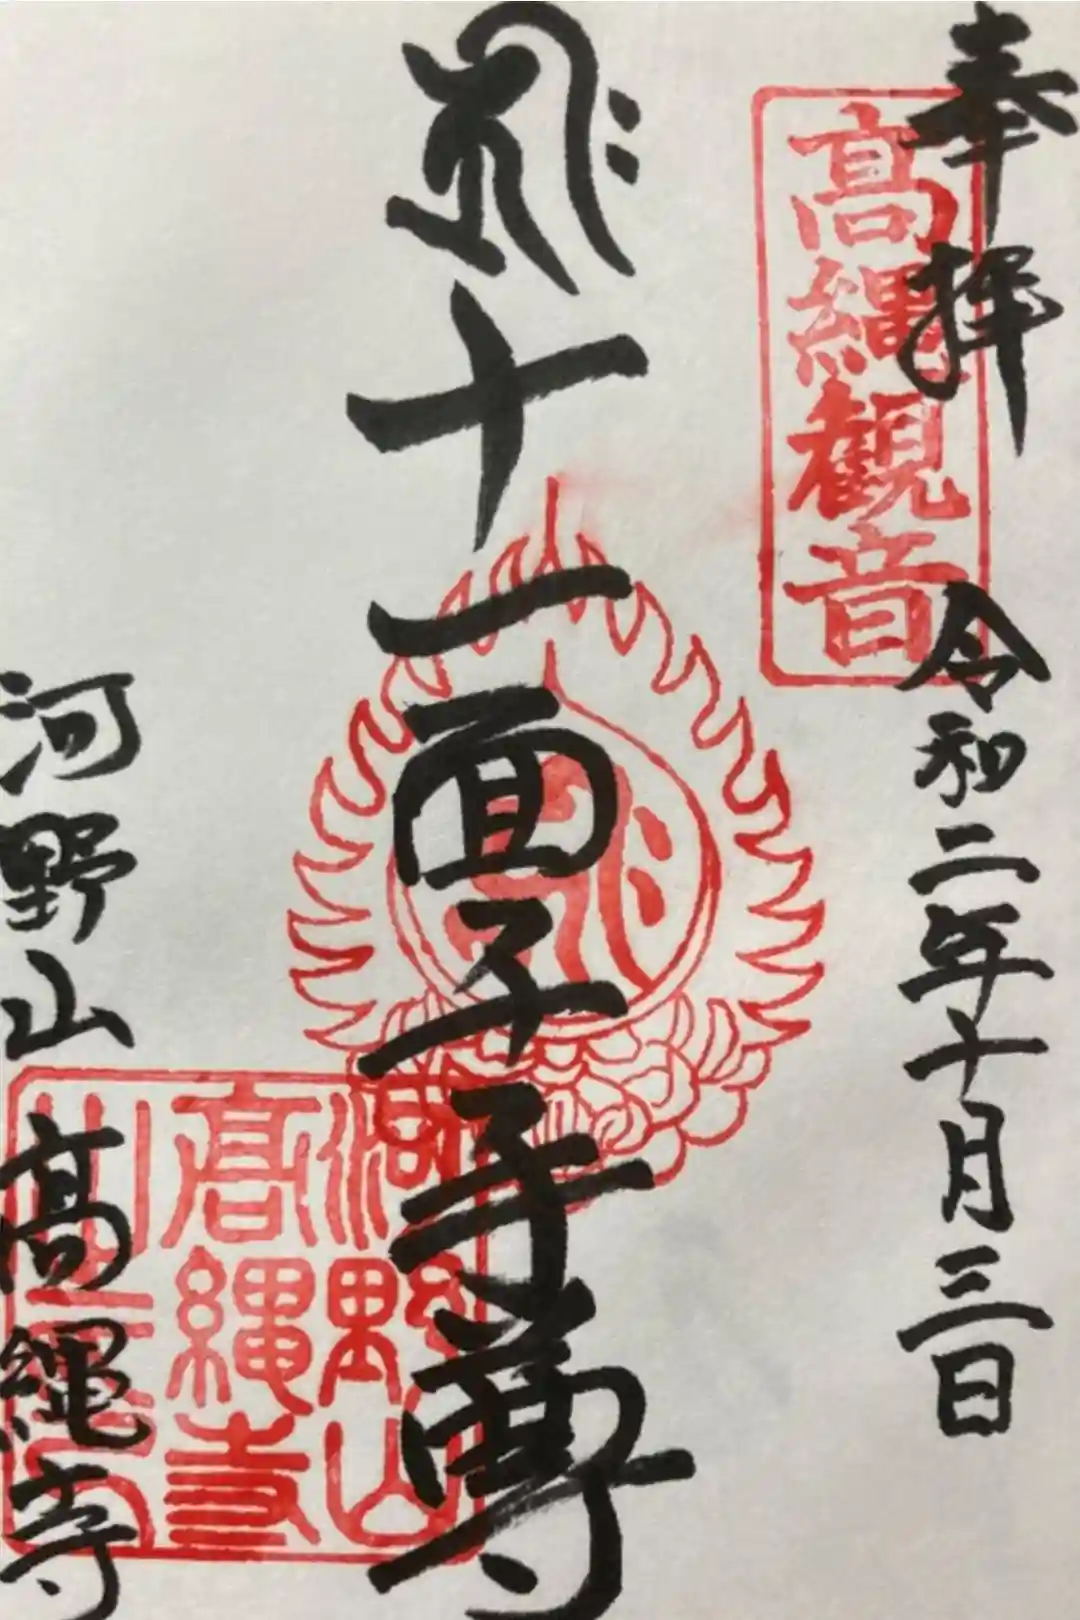 奉拝 令和二年十月三日
高縄観音
十一面千手尊
河野山
高縄寺
河野山 高縄寺